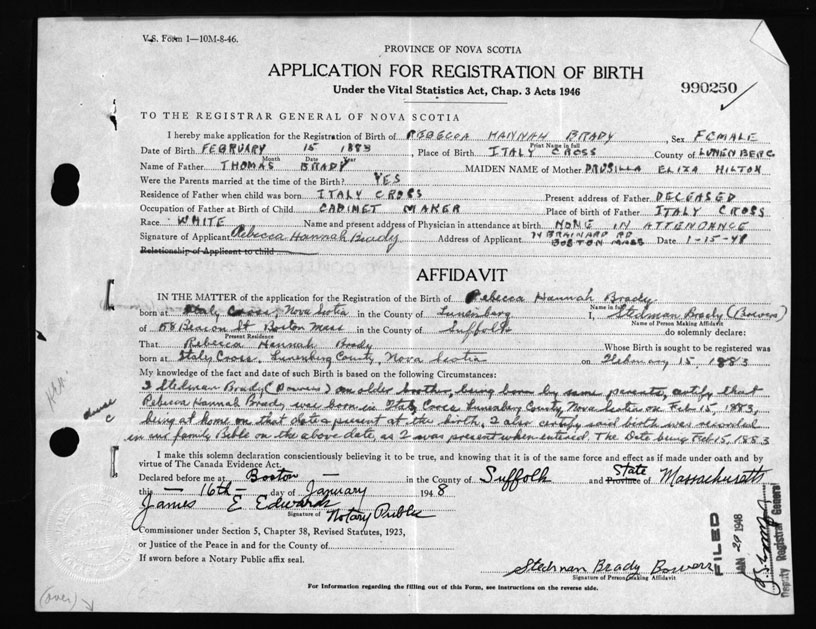 V.S. Form 1—10M-8-46.
PROVINCE OF NOVA SCOTIA
APPLICATION FOR REGISTRATION OF BIRTH
Under the Vital Statistics Act, Chap. 3 Acts 1946
990250
TO THE REGISTRAR GENERAL OF NOVA SCOTIA
I hereby make application for the Registration of Birth of REBECCA HANNAH BRADY, Sex FEMALE
Print Name in full
Date of Birth FEBRUARY 15 1883, Place of Birth ITALY CROSS County of LUNENBERG
Month Date Year
Name of Father THOMAS BRADY MAIDEN NAME of Mother DRUSILLA ELIZA HILTON
Were the Parents married at the time of the Birth? YES
Residence of Father when child was born ITALY CROSS Present address of Father DECEASED
Occupation of Father at Birth of Child CABINET MAKER Place of birth of Father ITALY CROSS
Race WHITE Name and present address of Physician in attendance at birth NONE IN ATTENDANCE
Signature of Applicant Rebecca Hannah Brady Address of Applicant 74 BRAINARD RD BOSTON MASS Date 1-15-48
Relationship of Applicant to child
AFFIDAVIT
IN THE MATTER of the application for the Registration of the Birth of Rebecca Hannah Brady
Name in full
born at Italy Cross, Nova Scotia in the County of Lunenburg I, Stedman Brady (Bowers)
Name of Person Making Affidavit
of 56 Beacon St Boston Mass in the County of Suffolk do solemnly declare:
Present Residence
That Rebecca Hannah Brady Whose Birth is sought to be registered was
born at Italy Cross, Lunenburg County, Nova Scotia on February 15, 1883
My knowledge of the fact and date of such Birth is based on the following Circumstances:
I Stedman Brady (Bowers) an older brother, being born by same parents, certify that
Rebecca Hannah Brady was born in Italy Cross Lunenburg County, Nova Scotia on Feb 15, 1883,
being at home on that date & present at the birth. I also certify said birth was recorded
in our family Bible on the above date, as I was present when entered. The Date being Feb 15, 1883
I make this solemn declaration conscientiously believing it to be true, and knowing that it is of the same force and effect as if made under oath and by
virtue of The Canada Evidence Act.
Declared before me at Boston in the County of Suffolk and Province State of Massachusetts
this 16th day of January 1948
James E Edwards
Signature of Notary Public
Commissioner under Section 5, Chapter 38, Revised Statutes, 1923,
or Justice of the Peace in and for the County of
If sworn before a Notary Public affix seal.
Stedman Brady Bowers
Signature of Person Making Affidavit
For Information regarding the filling out of this Form, see instructions on the reverse side.
FILED
JAN 20 1948
Deputy Registrar General
(over)